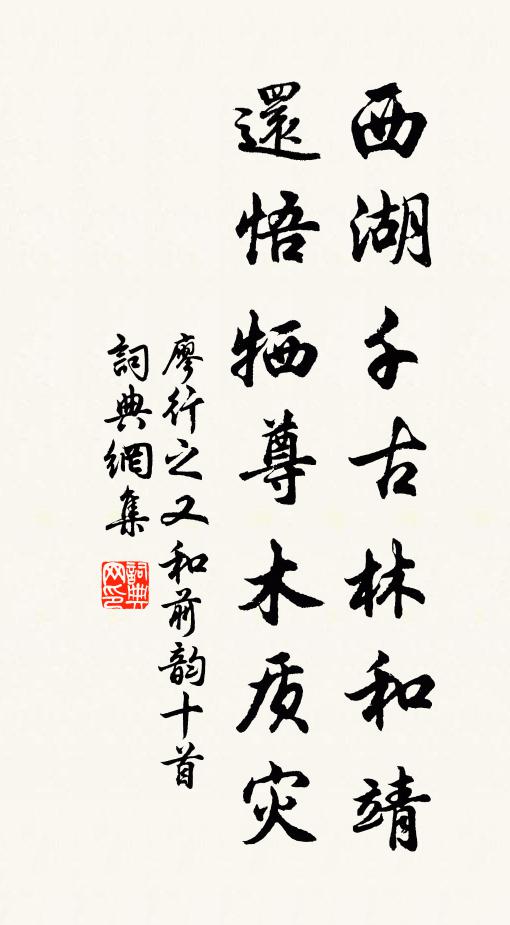 西湖千古林和靖
還悟牺尊木质灾
廖行之又和前韵十首
詞典網集
詞典网印